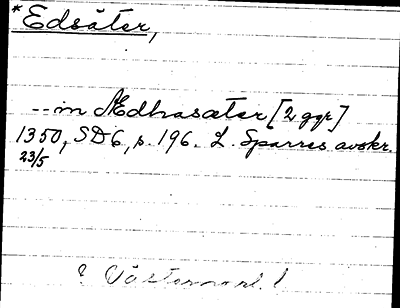 *Edsäter,
--in Ædhasæter [2 ggr]
1350, SD 6, s. 196. L. Sparres avskr.
23/5
? Västermanl. !